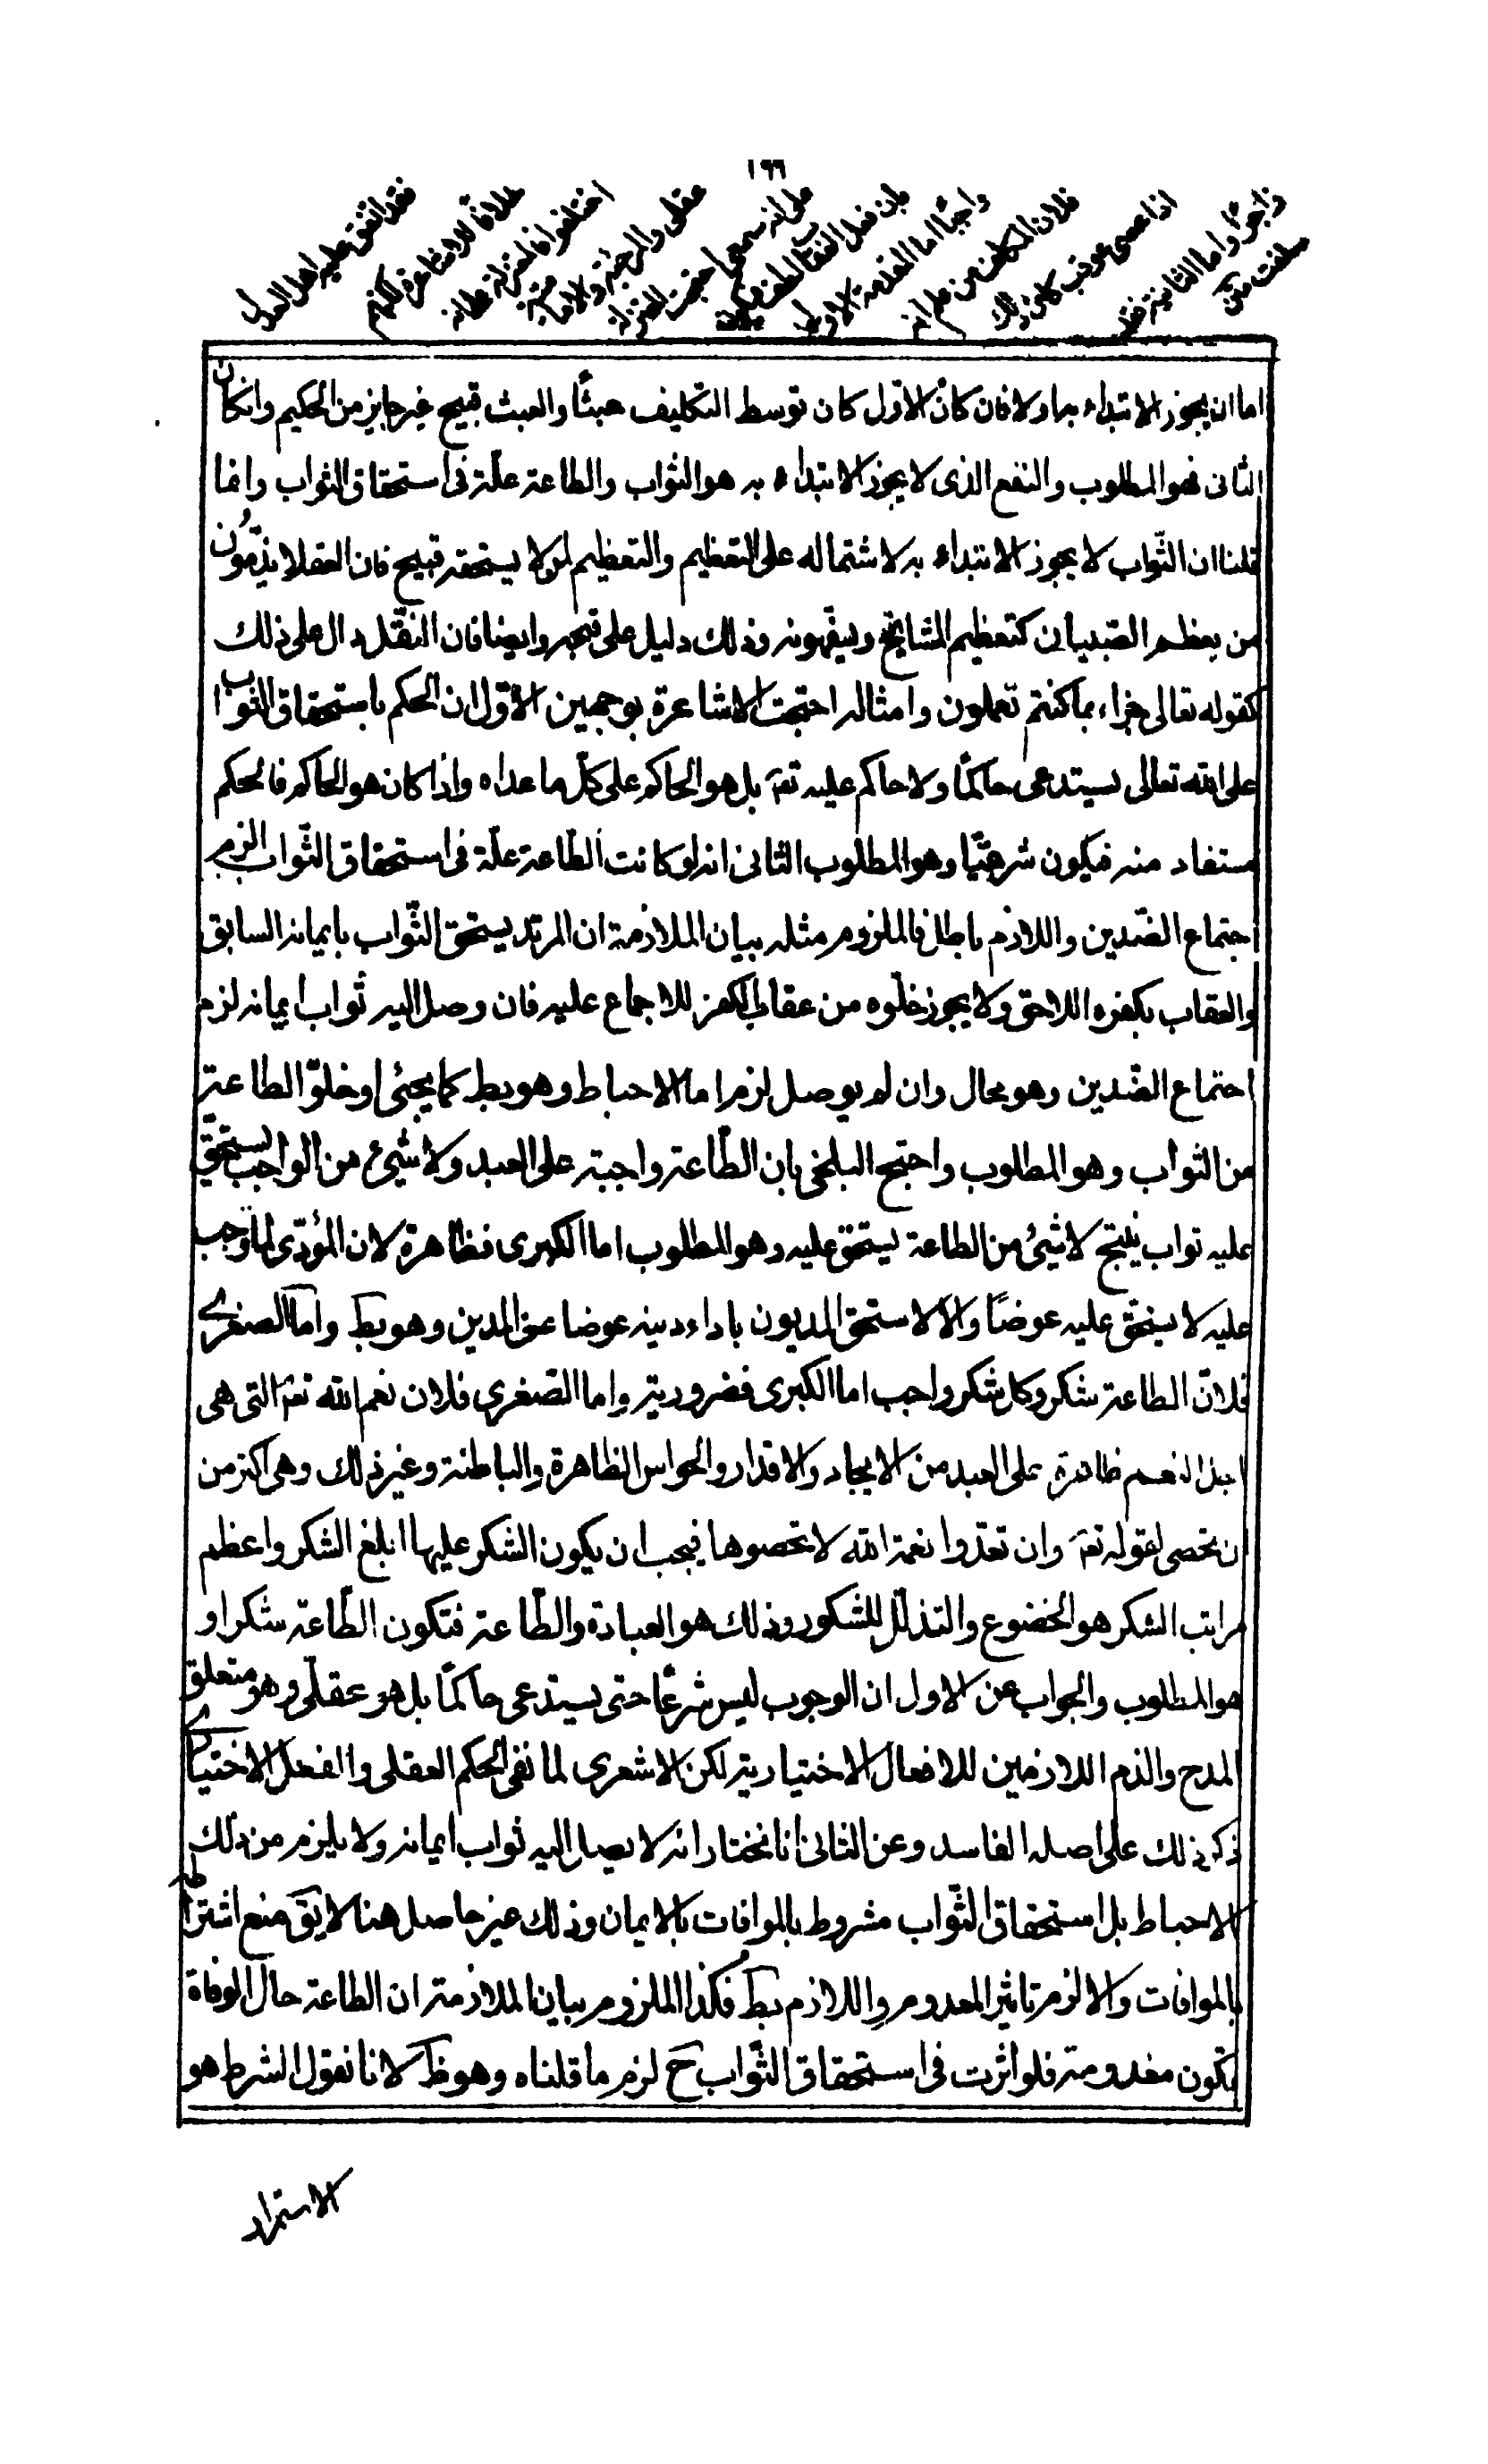 ١٩٩
فقد اتفق عليه اهل العدل
خلافا للاشاعرة لكنهم
اختلفوا فالمعتزلة على انه
عقلى والمرجئة والامامية
على انه سمعى احتجت المعتزلة
بان فعل العقاب لطف
واجبا اما المقدمة الاولى
فلان المكلف متى علم انه
اذا عصى عوقب كان ذلك
زاجرا واما الثانية فقد
سلفت متن
اما ان يجوز الابتداء به اولا فان كان الاول كان توسط التكليف عبثًا والعبث قبيح غير جايز من الحكيم وانكان
الثانى فهو المطلوب والنفع الذى لا يجوز الابتداء به هو الثواب والطاعة علّة فى استحقاق الثواب وانما
قلنا ان الثّواب لا يجوز الابتداء به لاشتماله على التعظيم والتعظيم لمن لا يستحقه قبيح فان العقلا يذمّون
من يعظم الصّبيان كتعظيم المشايخ ويسفّهونه وذلك دليل على قبحه وايضا فان النّقل دال على ذلك
كقوله تعالى جزاء بما كنتم تعملون وامثاله احتجت الاشاعرة بوجهين الاوّل ان الحكم باستحقاق الثواب
على الله تعالى يستدعى حاكمًا ولا حاكم عليه تعۤ بل هو الحاكم على كلّ ما عداه واذا كان هو الحاكم فالحكم
مستفاد منه فيكون شرعيّا وهو المطلوب الثانى انه لو كانت الطّاعة علّة فى استحقاق الثّواب لزم
اجتماع الضّدين واللازم باطل فالملزوم مثله بيان الملازمة ان المرتد يستحق الثّواب بايمانه السابق
والعقاب بكفره اللاحق ولا يجوز خلّوه من عقاب الكفر للاجماع عليه فان وصل اليه ثواب ايمانه لزم
اجتماع الضّدين وهو محال وان لم يوصل لزم اما الاحباط وهو بط كما يجئى او خلوّ الطاعة
من الثواب وهو المطلوب واحتج البلخى بان الطّاعة واجبة على العبد ولا شيئ من الواجب يستحقّ
عليه ثواب ينتج لا شيئ من الطاعة يستحق عليه وهو المطلوب اما الكبرى فظاهرة لان المؤدّى لما وجب
عليه لا يستحقّ عليه عوضًا والا لاستحق المديون باداء دينه عوضا عن الدين وهو بط واما الصغرى
فلانّ الطاعة شكر وكل شكر واجب اما الكبرى فضرورية واما الصّغرى فلان نعم الله تعۤ التى هى
اجل النعم ظاهرة على العبد من الايجاد والاقدار والحواس الظاهرة والباطنة وغير ذلك وهى اكثر من
ان تحصى لقوله تعۤ وان تعدّوا نعمة الله لا تحصوها فيجب ان يكون الشكر عليها ابلغ الشكر واعظم
مراتب الشكر هو الخضوع والتذلّل للمشكور وذلك هو العبادة والطّاعة فتكون الطّاعة شكرا و
هو المطلوب والجواب عن الاول ان الوجوب ليس شرعًا حتى يستدعى حاكمًا بل هو عقلّى وهو متعلق
المدح والذم اللازمين للافعال الاختيارية لكن الاشعرى لما نفى الحكم العقلى والفعل الاختيارى
ذكر ذلك على اصله الفاسد وعن الثانى انا نختار انه لا يصل اليه ثواب ايمانه ولا يلزم من ذلك
الاحباط بل استحقاق الثّواب مشروط بالموافات بالايمان وذلك غير حاصل هنا لا يقۤ منع اشتراط
بالموافات والا لزم تاثير المعدوم واللازم بط فكذا الملزوم بيان الملازمة ان الطاعة حال الوفاة
تكون معدومة فلو اثرت فى استحقاق الثّواب ح لزم ما قلناه وهو ظ لانا نقول الشرط هو
الاستمرار